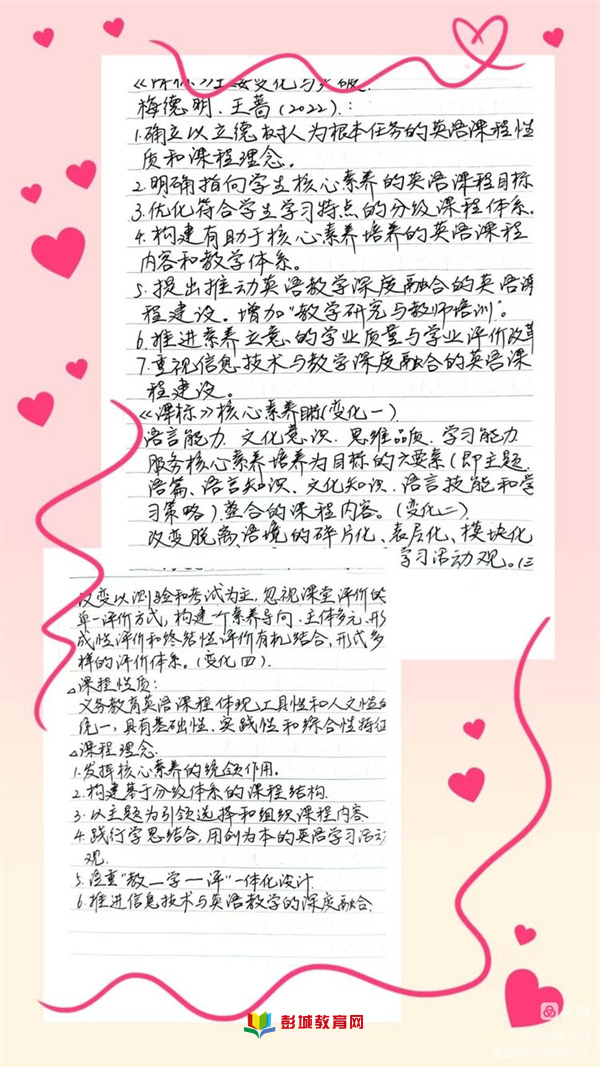 梅德明、王蔷(2022):
1.确立以立德树人为根本任务的英语课程性
质和课程理念。
2.明确指向学生核心素养的英语课程目标
3.优化符合学生学习特点的分级课程体系。
4.构建有助于核心素养培养的英语课程
内容和教学体系。
5.提出推动英语教学深度融合的英语课
程建设。增加"教学研究与教师培训"。
6.推进素养立意、的学业质量与学业评价改革
7.重视信息技术与教学深度融合的英语课
程建设。
《课标》核心素养(变化一)
语言能力、文化意识、思维品质、学习能力
服务核心素养培养为目标的六要素(即主题、
语篇、语言知识、文化知识、语言技能和学
习策略)整合的课程内容。(变化二)
改变脱离语境的碎片化、表层化、模块化
学习活动观。(三
改变以测验和考试为主,忽视课堂评价的
单一评价方式,构建一个素养导向、主体多元、形
成性评价和终结性评价有机结合,形式多
样的评价体系。(变化四)
△课程性质:
义务教育英语课程体现工具性和人文性的
统一,具有基础性、实践性和综合性特征
△课程理念:
1.发挥核心素养的统领作用。
2.构建基于分级体系的课程结构
3.以主题为引领选择和组织课程内容
4.践行学思结合,用创为本的英语学习活动
观.
5.注重"教—学—评"一体化设计.
6.推进信息技术与英语教学的深度融合.
彭城教育网